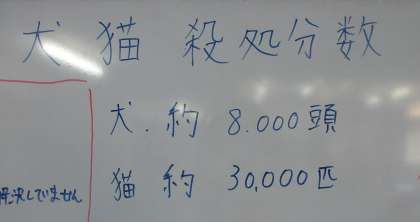 犬 猫 殺処分数
犬.約 8.000頭
猫 約 30,000匹
決していません